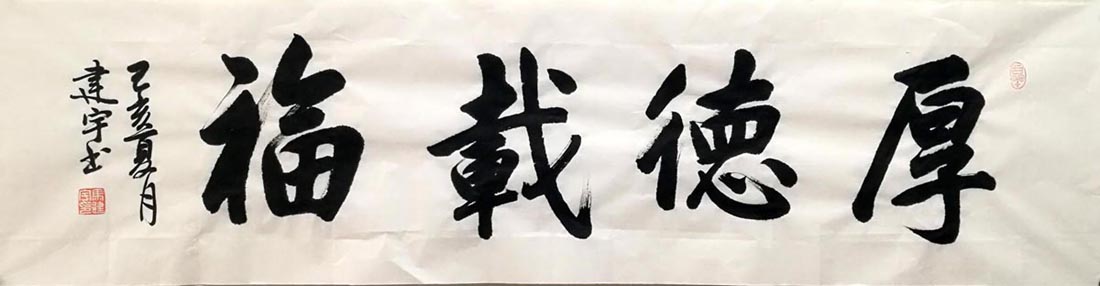 厚德載福
己亥夏月
建宇书